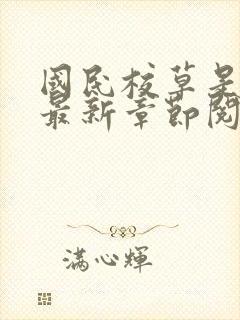 國民校草是
最新章節閱
滿心輝